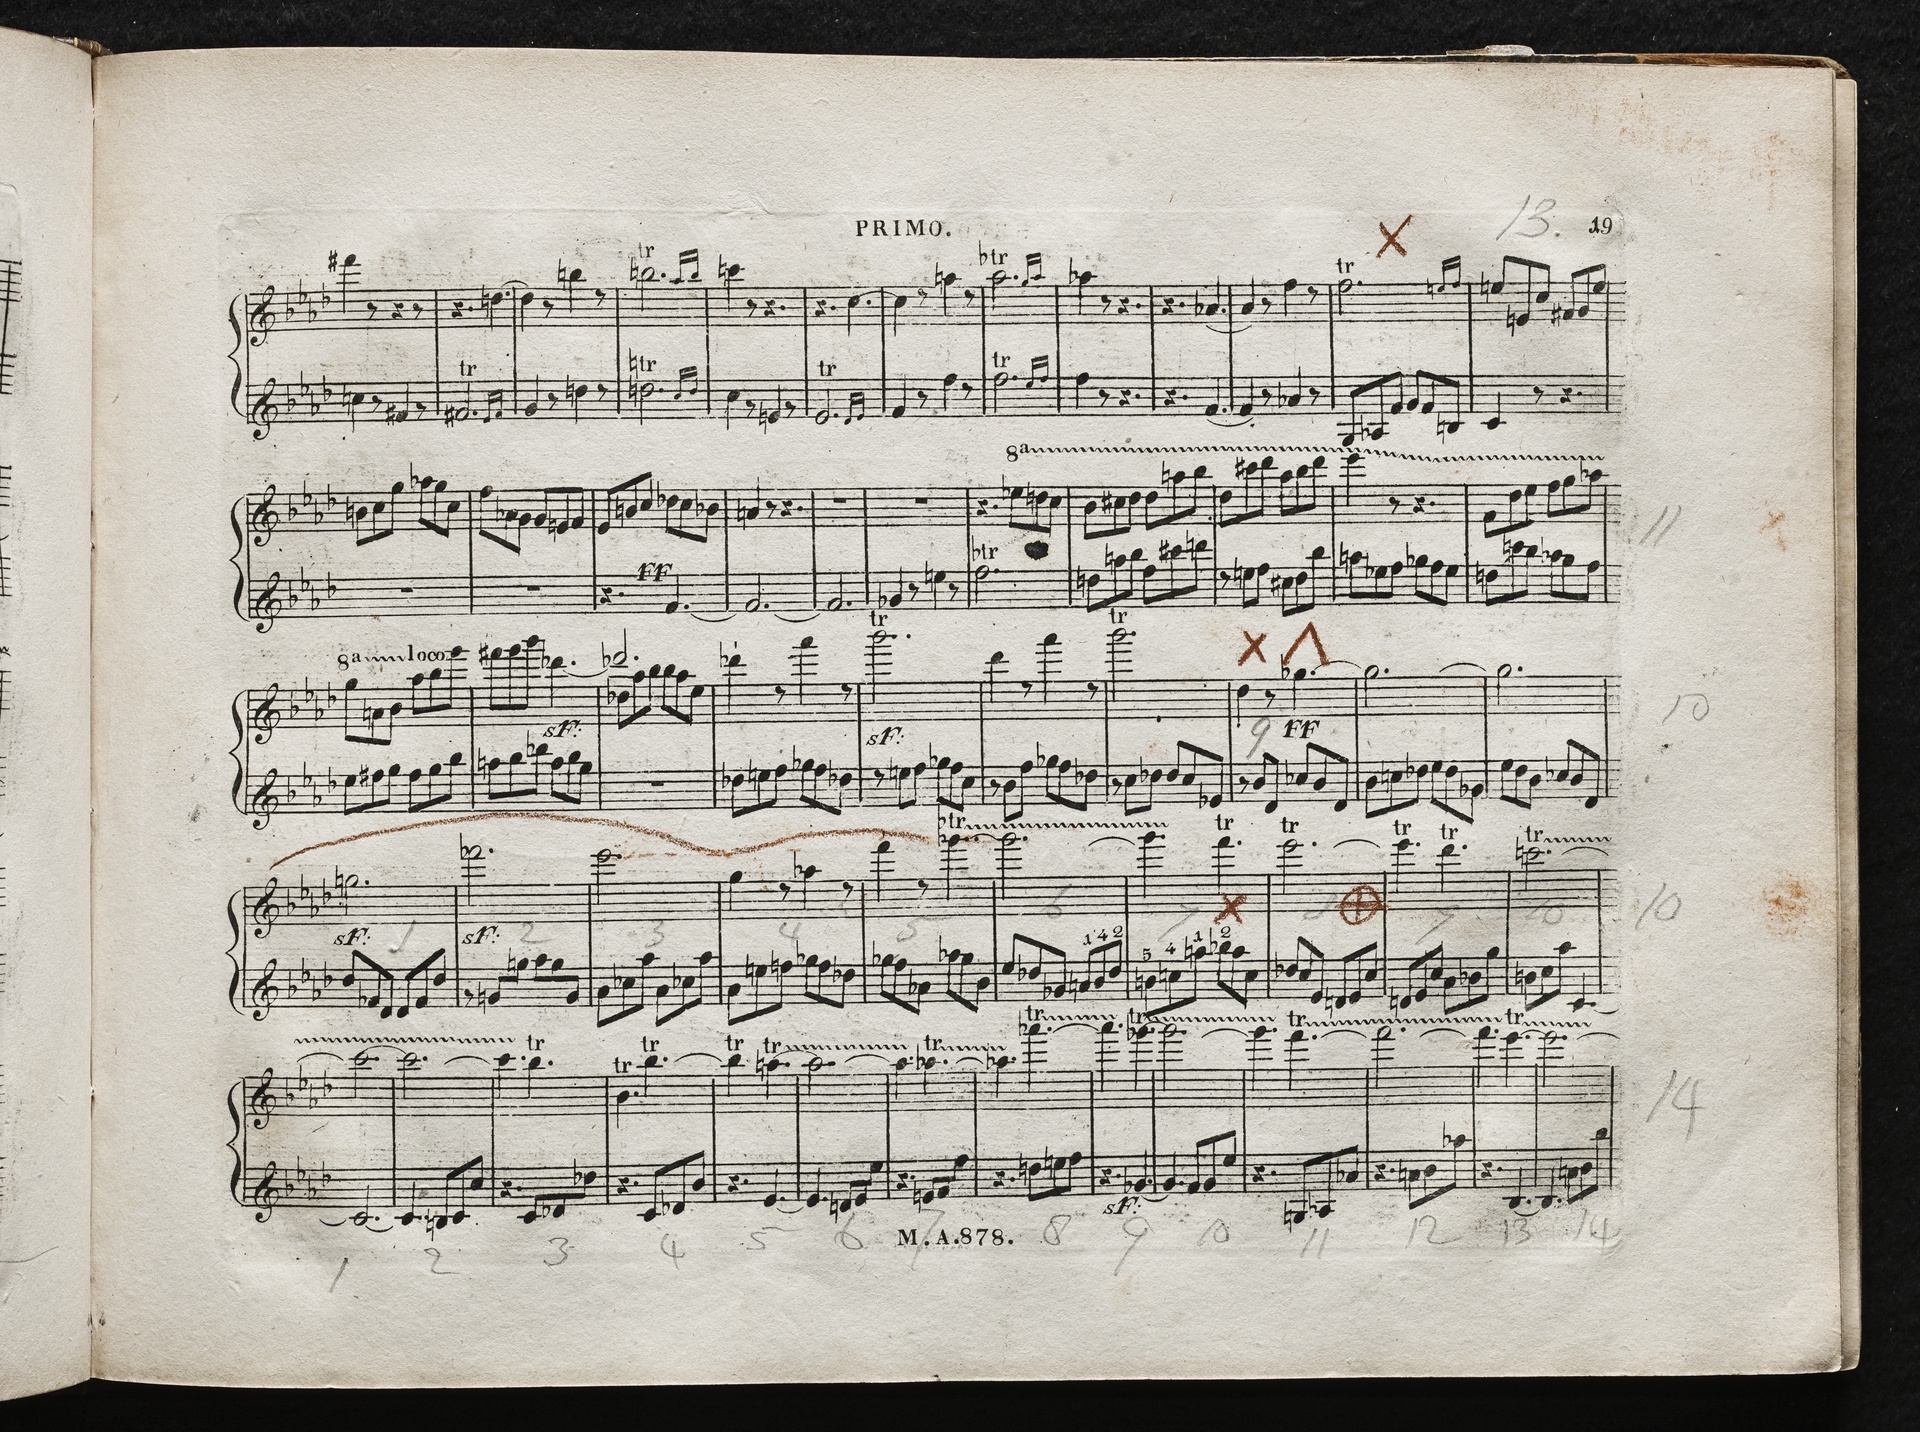 PRIMO. 13. 19
tr
tr btr tr
tr ♮tr tr tr
8a
11
FF btr
tr tr
8a loco
sF: sF: 9 FF 10
btr tr tr tr tr tr
6 7 10
sF: 1 sF: 2 3 4 5 10
1 4 2 5 4 1 2
tr tr tr tr tr
tr tr tr tr tr tr
14
sF:
M.A.878.
1 2 3 4 5 6 7 8 9 10 11 12 13 14